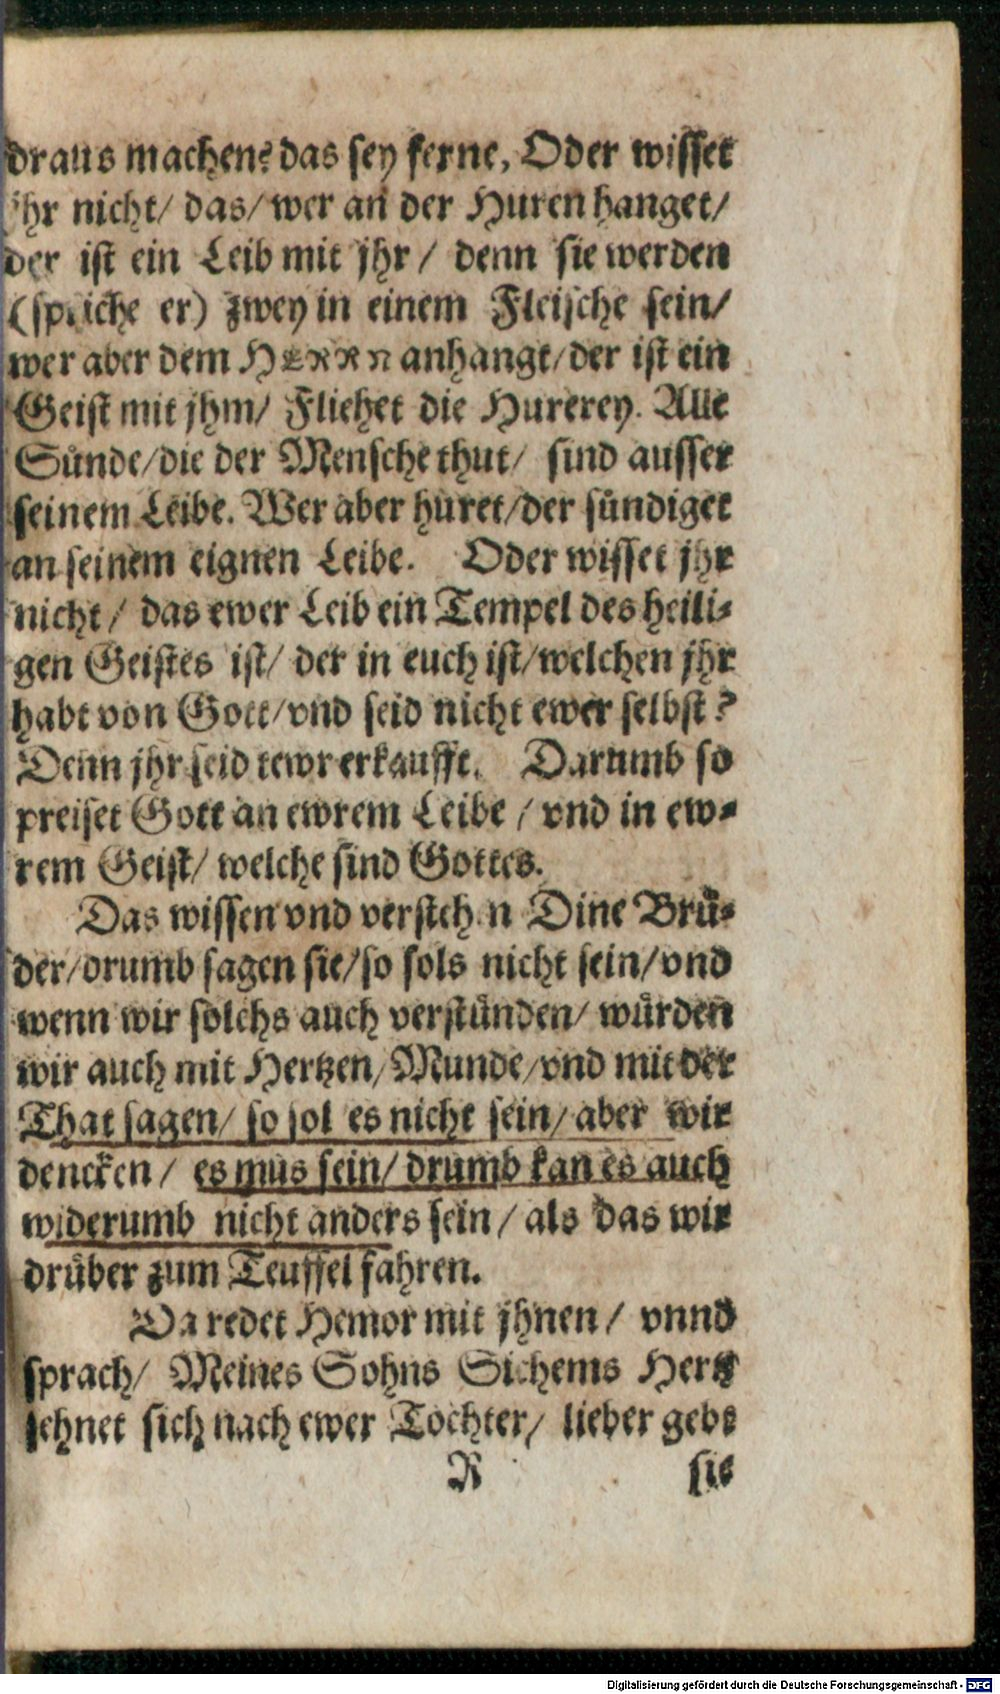 draus machen? das sey ferne, Oder wisset
jhr nicht/ das/ wer an der Huren hanget/
der ist ein Leib mit jhr/ denn sie werden
(spriche er) zwey in einem Fleische sein/
wer aber dem HERRN anhangt/ der ist ein
Geist mit jhm/ Fliehet die Hurerey. Alle
Sünde/ die der Mensche thut/ sind ausser
seinem Leibe. Wer aber huret/ der sündiget
an seinem eignen Leibe. Oder wisset jhr
nicht/ das ewer Leib ein Tempel des heili-
gen Geistes ist/ der in euch ist/ welchen jhr
habt von Gott/ vnd seid nicht ewer selbst?
Denn jhr seid tewr erkaufft. Darumb so
preiset Gott an ewrem Leibe/ vnd in ew-
rem Geist/ welche sind Gottes.
Das wissen vnd verstehen Dine Brü-
der/ drumb sagen sie/ so sols nicht sein/ vnd
wenn wir solchs auch verstünden/ würden
wir auch mit Hertzen/ Munde/ vnd mit der
That sagen/ so sol es nicht sein/ aber wir
dencken/ es mus sein/ drumb kan es auch
widerumb nicht anders sein/ als das wir
drüber zum Teuffel fahren.
Da redet Hemor mit jhnen/ vnnd
sprach/ Meines Sohns Sichems Hertz
sehnet sich nach ewer Tochter/ lieber gebt
R sie
Digitalisierung gefördert durch die Deutsche Forschungsgemeinschaft - DFG